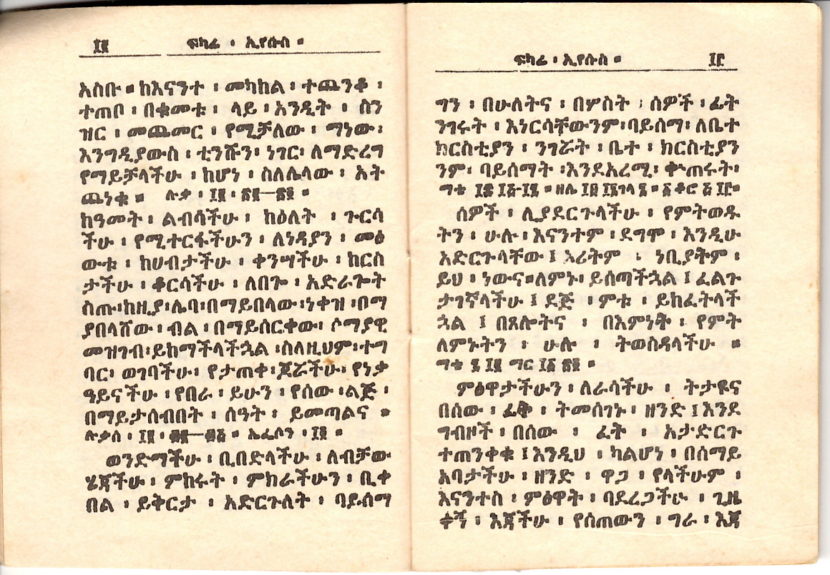 ፲፪ ፍካሬ ፡ ኢየሱስ ።
አስቡ ። ከእናንተ ፡ መካከል ፡ ተጨንቆ ፡
ተጠቦ ፡ በቁመቱ ፡ ላይ ፡ አንዲት ፡ ስን
ዝር ፡ መጨመር ፡ የሚቻለው ፡ ማነው፡
እንግዲያውስ ፡ ቲንሹን፡ ነገር፡ ለማድረግ
የማይቻላችሁ ፡ ከሆነ ፡ ስለሌላው ፡ አት
ጨነቁ ። ሉቃ ፡ ፲፪ ፡
ከዓመት ፡ ልብሳችሁ ፡ ከዕለት ፡ ጉርሳ
ችሁ ፡ የሚተርፋችሁን ፡ ለነዳያን ፡ መፅ
ውቱ ፡ ከሀብታችሁ ፡ ቀንሣችሁ ፡ ከርስ
ታችሁ ፡ ቆርሳችሁ ፡ ለበጎ ፡ አድራጎት
ስጡ፡ከዚያ፡ሌባ፡በማይበላው፡ነቀዝ ፡በማ
ያበላሸው፡ ብል ፡ በማይሰርቀው፡ ሶማያዊ
መዝገብ፡ይከማችላችኋል ፡ስለዚህም፡ተግ
ባር፡ ወገባችሁ፡ የታጠቀ፡ጆሯችሁ፡ የነቃ
ዓይናችሁ ፡ የበራ ፡ ይሁን ፡ የሰው ፡ልጅ ፡
በማይታሰብበት ፡ ሰዓት ፡ ይመጣልና ።
ሉቃስ ፡ ፲፪ ፡ ኤፌሶን ፡
ወንድማችሁ ፡ ቢበድላችሁ ፡ ለብቻው
ሄዳችሁ ፡ ምከሩት ፡ ምክራችሁን ፡ ቢቀ
በል ፡ ይቅርታ ፡ አድርጉለት ፡ ባይሰማ
ፍካሬ ፡ ኢየሱስ ።
ግን ፡ በሁለትና ፡ በሦስት ፡ ሰዎች ፡ ፊት
ንገሩት ፡ እነርሳቸውንም፡ባይሰማ፡ ለቤተ
ክርስቲያን ፡ ንገሯት ፡ ቤተ ፡ ክርስቲያን
ንም፡ ባይሰማት ፡እንደአረሚ፡ ቍጠሩት፡
ማቴ
ሰዎች ፡ ሊያደርጉላችሁ ፡ የምትወዱ
ትን ፡ ሁሉ ፡ እናንተም ፡ ደግሞ ፡ እንዲሁ
አድርጉላቸው ፤ ኦሪትም ፡ ነቢያትም ፡
ይህ ፡ ነውና፡ለምኑ፡ ይሰጣችኋል ፤ ፈልጉ
ታገኛላችሁ ፤ ደጅ ፡ ምቱ ፡ ይከፈትላች
ኋል ፤ በጸሎትና ፡ በእምነት ፡ የምት
ለምኑትን ፡ ሁሉ ፡ ትወስዳላችሁ ።
ማቴ ፯ ፤ ማር
ምፅዋታችሁን ፡ ለራሳችሁ ፡ ትታዩና
በሰው ፡ ፊት ፡ ትመሰገኑ ፡ ዘንድ ፤ እንደ
ግብዞች ፡ በሰው ፡ ፊት ፡ አታድርጉ
ተጠንቀቁ ፤ እንዲህ ፡ ካልሆነ ፡ በሰማይ
አባታችሁ ፡ ዘንድ ፡ ዋጋ ፡ የላችሁም ፡
እናንተስ ፡ ምፅዋት ፡ ባደረጋችሁ ፡ ጊዜ
ቀኝ ፡ እጃችሁ ፡ የሰጠውን ፡ ግራ ፡ እጃ